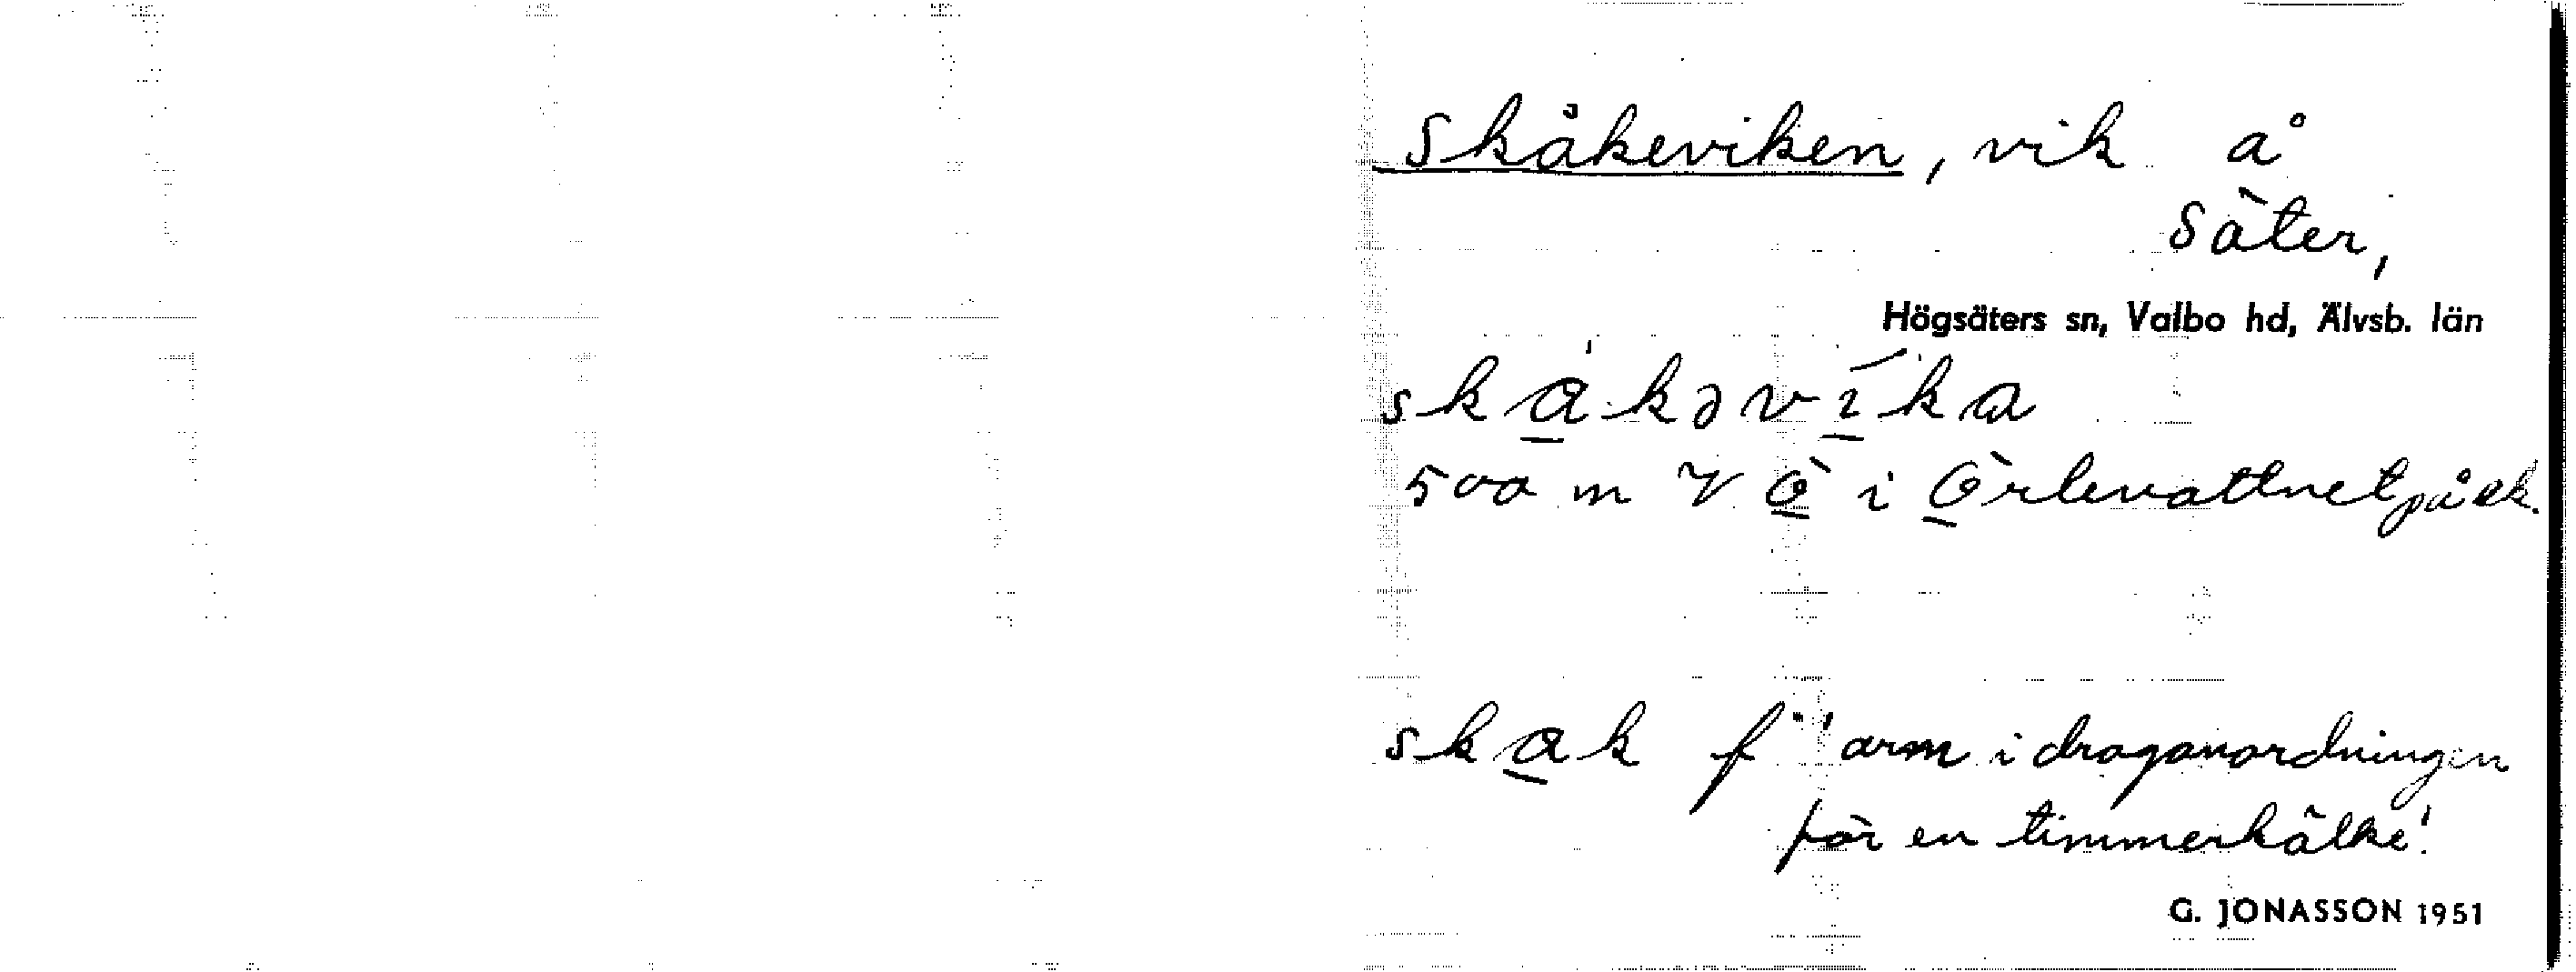 Skåkeviken, vik å
Säter,
Högsäters sn, Valbo hd, Älvsb. län
skɑ̀kəvíka
500 m V Ö i Örlevattnet på ek.
skɑk f 'arm i draganordningen
för en timmerkälke'
G. JONASSON 1951